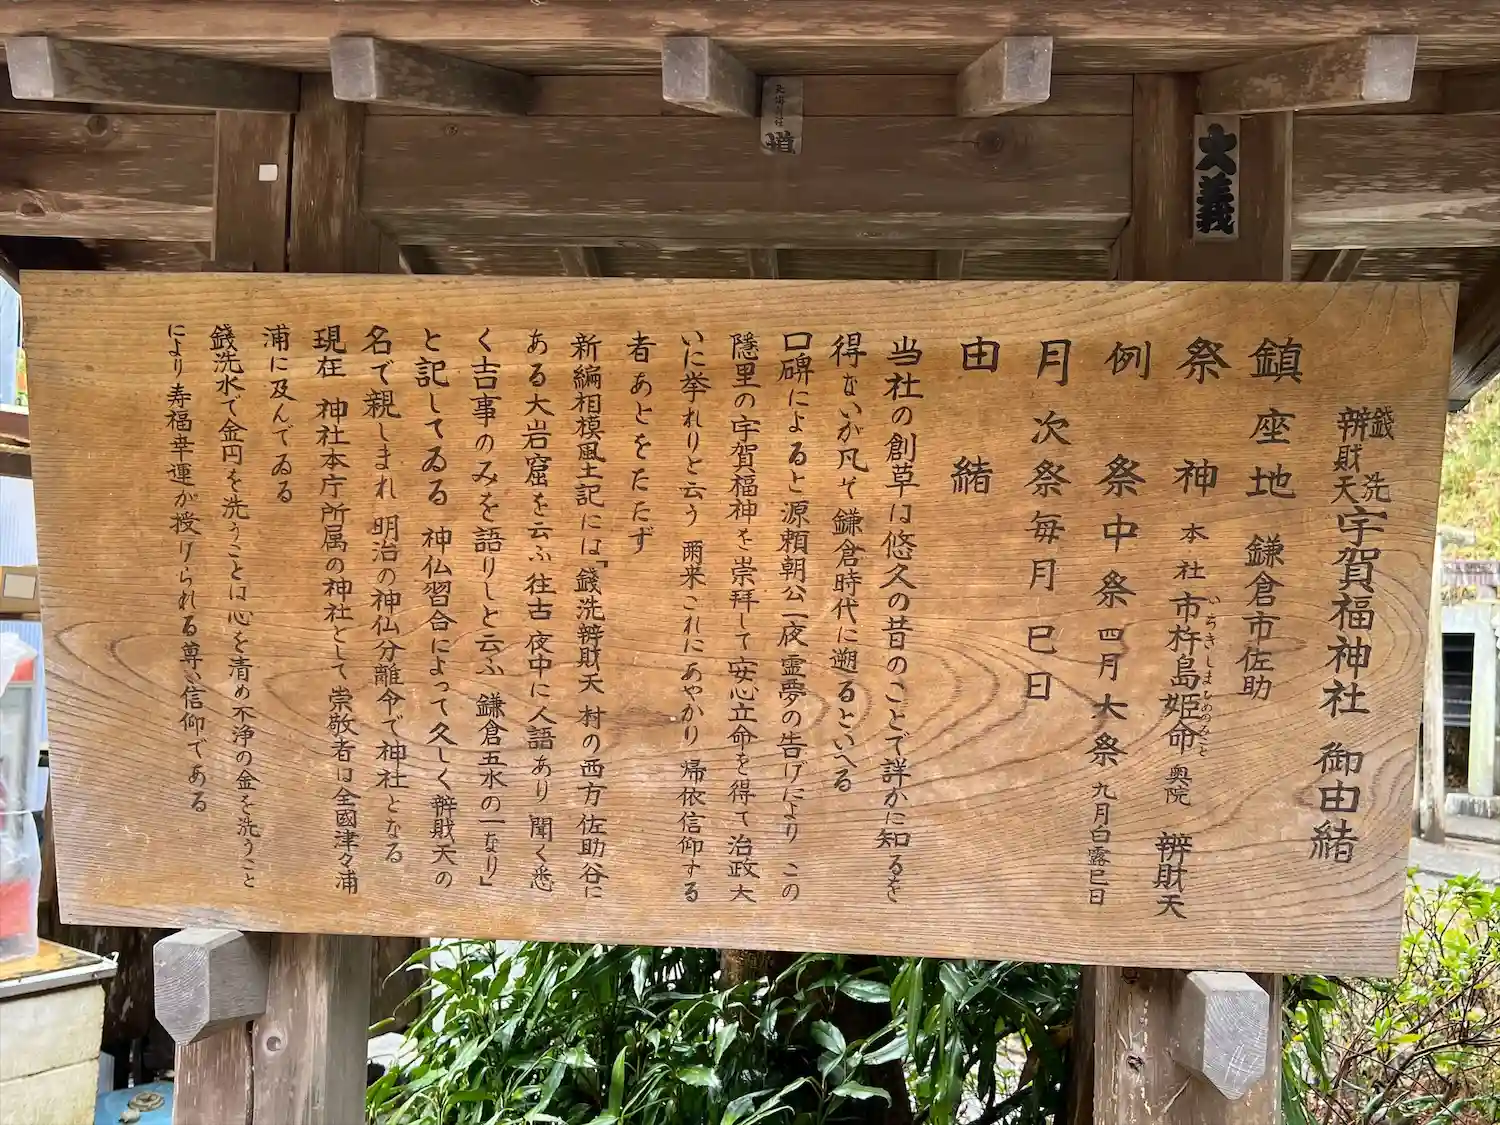 錢洗辨財天 宇賀福神社 御由緒
鎮座地 鎌倉市佐助
祭神 本社 市杵島姫命 奥院 辨財天
いちきしまひめのみこと
例祭 中祭 四月 大祭 九月白露巳日
月次祭 毎月 巳日
由緒
当社の創草は悠久の昔のことで詳かに知るを
得ないが凡そ鎌倉時代に遡るといへる
口碑によると源頼朝公一夜霊夢の告げにより この
隠里の宇賀福神を崇拜して安心立命を得て治政大
いに挙れりと云う 爾来これにあやかり 帰依信仰する
者あとをたたず
新編相模風土記には「錢洗辨財天 村の西方佐助谷に
ある大岩窟を云ふ 往古 夜中に人語あり 聞く悉
く吉事のみを語りしと云ふ 鎌倉五水の一なり」
と記してゐる 神仏習合によって久しく辨財天の
名で親しまれ 明治の神仏分離令で神社となる
現在 神社本庁所属の神社として 崇敬者は全國津々浦
浦に及んでゐる
錢洗水で金円を洗うことは心を清め不浄の金を洗うこと
により 寿福幸運が授けられる尊い信仰である
大義
道